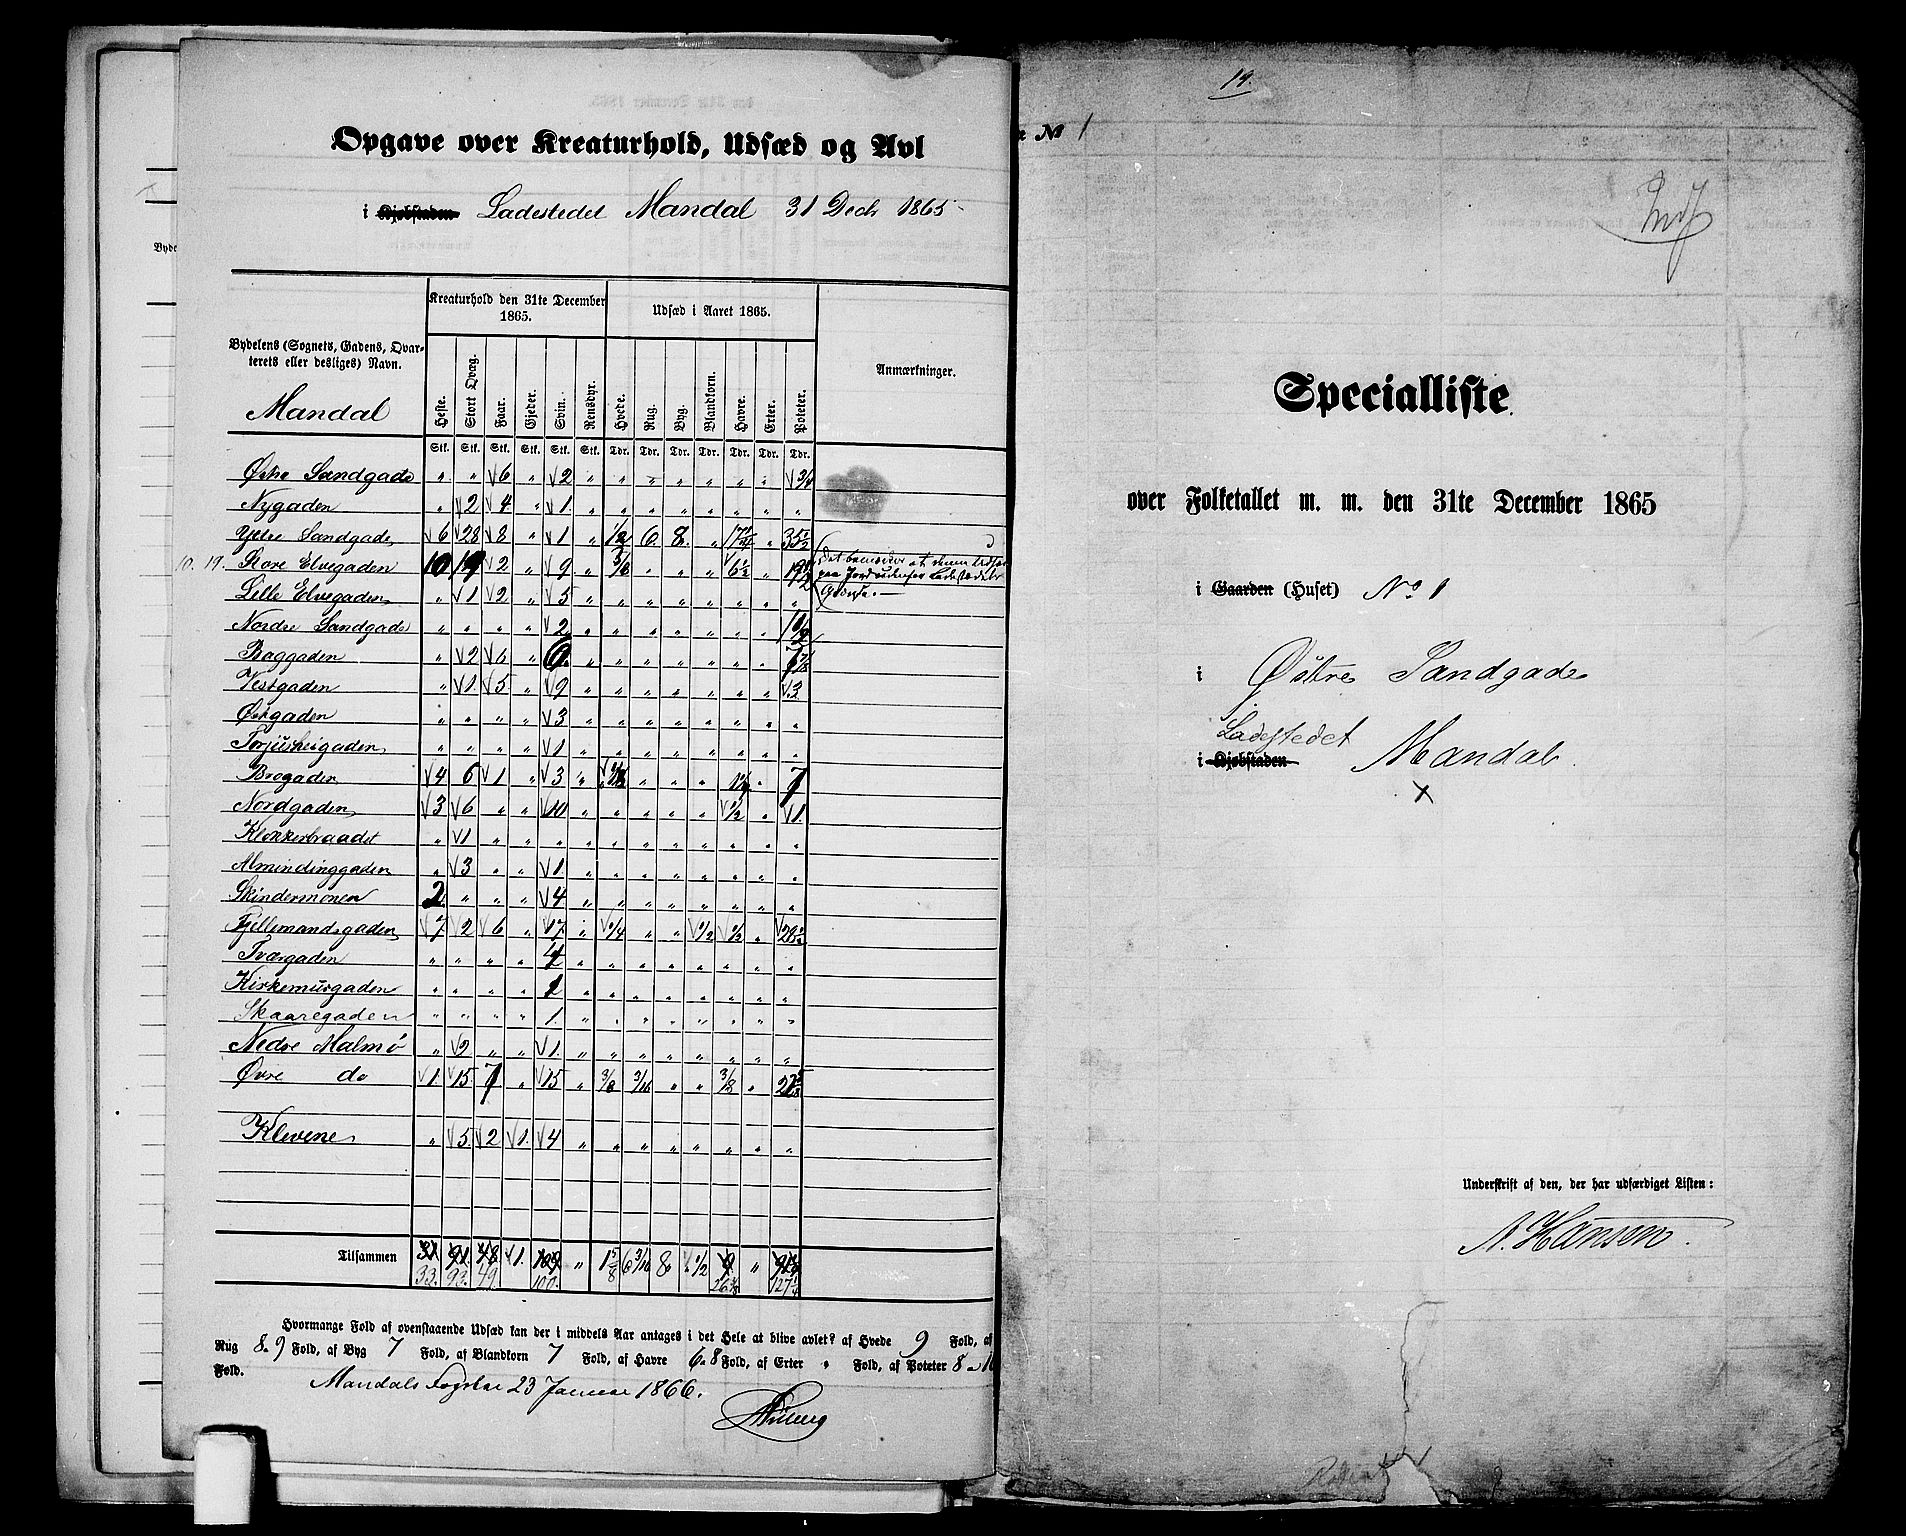 Opgave over Kreaturhold, Udsæd og Avl
i Kjøbstaden Ladestedet Mandal 31 Decbr 1865
Kreaturhold den 31te December 1865.
Udsæd i Aaret 1865.
Bydelens (Sognets, Gadens, Qvarterets eller desliges) Navn.
Mandal
Heste. Stort Qvæg. Faar. Gjeder. Svin. Rensdyr. Hvede. Rug. Byg. Blandkorn. Havre. Erter. Poteter.
Anmærkninger.
Stk. Stk. Stk. Stk. Stk. Stk. Tdr. Tdr. Tdr. Tdr. Tdr. Tdr. Tdr.
Østre Sandgade " " 6 " 2 " " " " " " " 3/4
Nygaden " 2 4 " 1 " " " " " " " "
Ydre Sandgade 6 28 8 " 1 " 1/2 6 8 " 17 1/4 " 35 1/2
10. 19. Store Elvegaden 10 19 2 " 9 " 3/8 " " " 6 1/2 " 19 1/2
Lille Elvegaden " 1 2 " 5 " " " " " " " "
Nordre Sandgade " " " " 2 " " " " " " " 1 1/2
Baggaden " 2 6 " 6 " " " " " " "
Vestgaden " 1 5 " 9 " " " " " " " 3
Østgaden " " " " 3 " " " " " " " "
Torjusheigaden " " " " 1 " " " " " " " "
Brogaden 4 6 1 " 3 " " " " " 7
Nordgaden 3 6 " " 10 " " " " " 1/2 " 1
Klokkerbraadet " 1 " " " " " " " " " " "
Almindinggaden " 3 " " 1 " " " " " " " "
Skindermonen 2 " " " 4 " " " " " " " "
Fjellemandsgaden 7 2 6 " 17 " 1/4 " " 1/2 1/2 " 29 1/2
Tværgaden " " " " 4 " " " " " " " "
Kirkemurgaden " " " " 1 " " " " " " " "
Skaaregaden " " " " 1. " " " " " " " "
Nedre Malmø " 2 " " 1 " " " " " " " "
Øvre do 1 15 7 " 15 " 3/8 3/16 " " 3/8 "
Klevene " 5 2 1 4 " " " " " " " "
Det bemærkes at denne Udsæd
paa Jord udenfor Ladestedets
Grændse.
Tilsammen 31 91 48 1. 109 " 1 5/8 6 3/16 8 1/2 9 "
33. 93. 49. 100. 26 5/8 127 1/4
Hvormange Fold af ovenstaaende Udsæd kan der i middels Aar antages i det Hele at blive avlet? af Hvede 9 Fold, af
Rug 8 a 9 Fold, af Byg 7 Fold, af Blandkorn 7 Fold, af Havre 6 a 8 Fold, af Erter " Fold, af Poteter 8 a 10
Fold.
Mandals Fogderie 23 Januar 1866.
19.
№ 1
Specialliste
over Folketallet m. m. den 31te December 1865
i Gaarden (Huset) No 1
i Østre Sandgade
Ladestedet
i Kjøbstaden Mandal.
x
Underskrift af den, der har udfærdiget Listen:
A. Hansen.